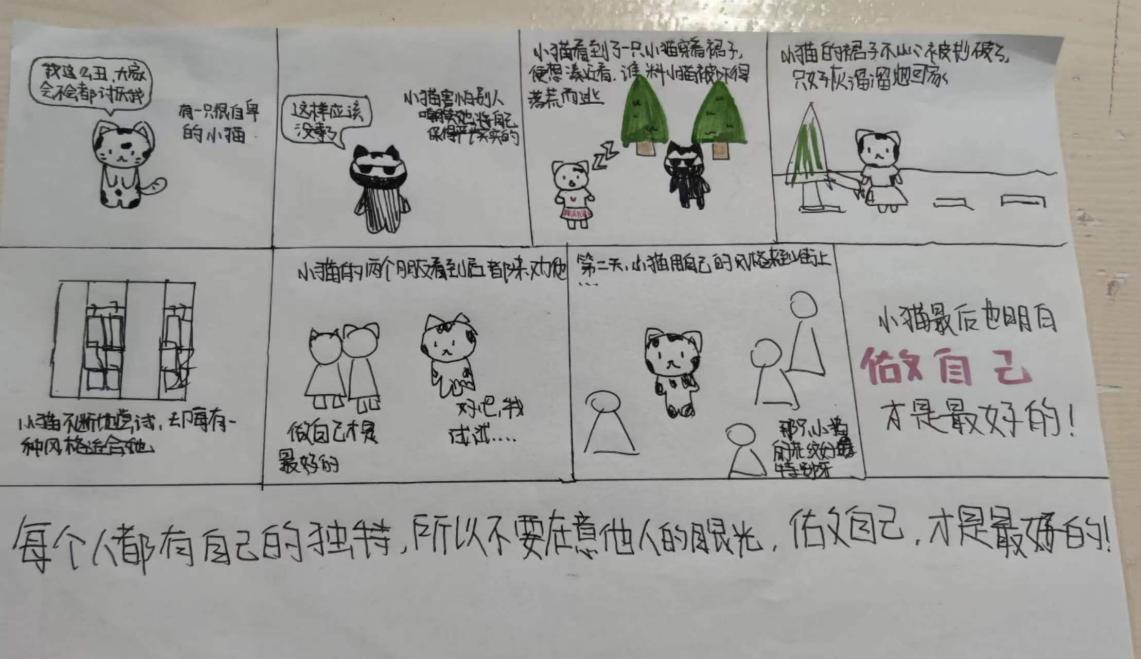 我这么丑,大家
会不会都讨厌我
有一只很自卑
的小猫
这样应该
没事了
小猫害怕别人
嘲笑他,将自己
保得严严实实的
小猫看到了一只小猫穿着裙子,
便想凑近看,谁料小猫被吓得
落荒而逃
小猫的裙子不小心被扒破了,
只好灰溜溜地回家
小猫不断地尝试,却没有一
种风格适合他
小猫的两个朋友看到后都来劝他
做自己才是
最好的
好吧,我
试试....
第二天,小猫用自己的风格来到街上
...
那只小猫
的花纹好
特别呀
小猫最后也明白
做自己
才是最好的!
每个人都有自己的独特,所以不要在意他人的眼光,做自己,才是最好的!